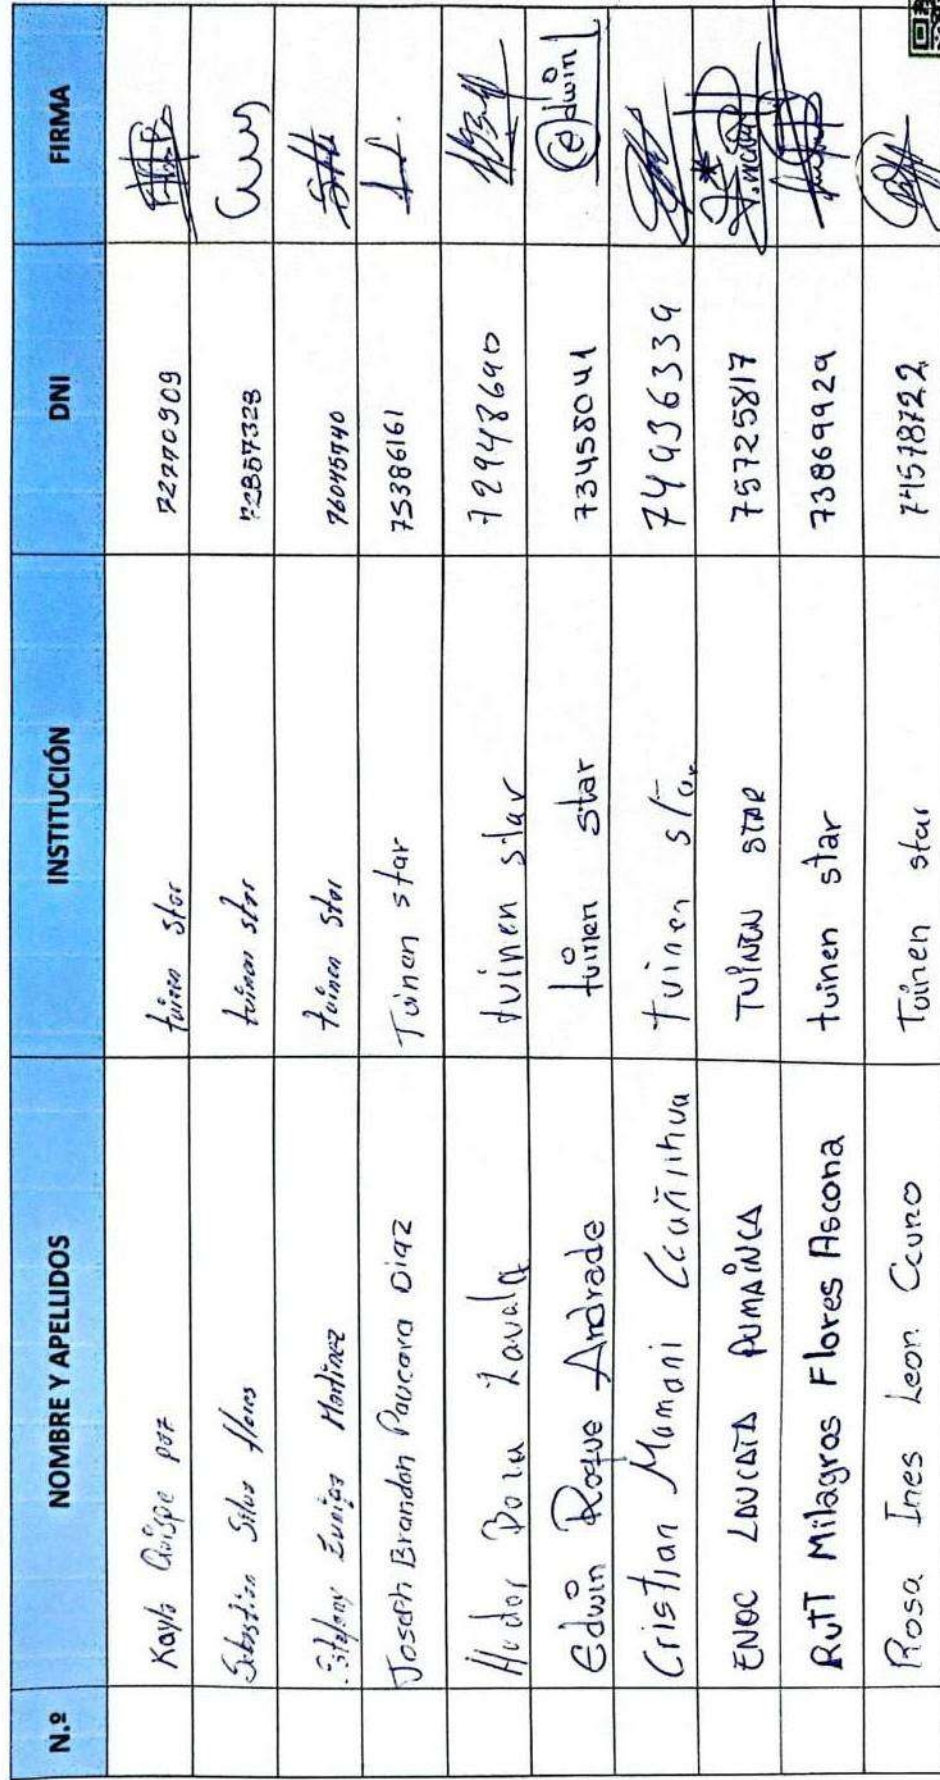 N.º NOMBRE Y APELLIDOS INSTITUCIÓN DNI FIRMA
Kayla Quispe paz tuinen star 72270909
Sebastian Silva flores tuinen star 72887323
Stefany Zuniga Martinez tuinen star 76045740
Joseph Brandon Paucara Diaz Tuinen star 75386161
Zavala tuinen star 72948690
Edwin Roque Andrade tuinen star 73458041 edwin
Cristian Mamani Ccañihua tuinen star 74936339
ENOC LAUCATA PUMAINCA TUINEN STAR 75725817
RUTT Milagros Flores Ascona tuinen star 73869929
Rosa Ines Leon Ccuno Tuinen star 74578722